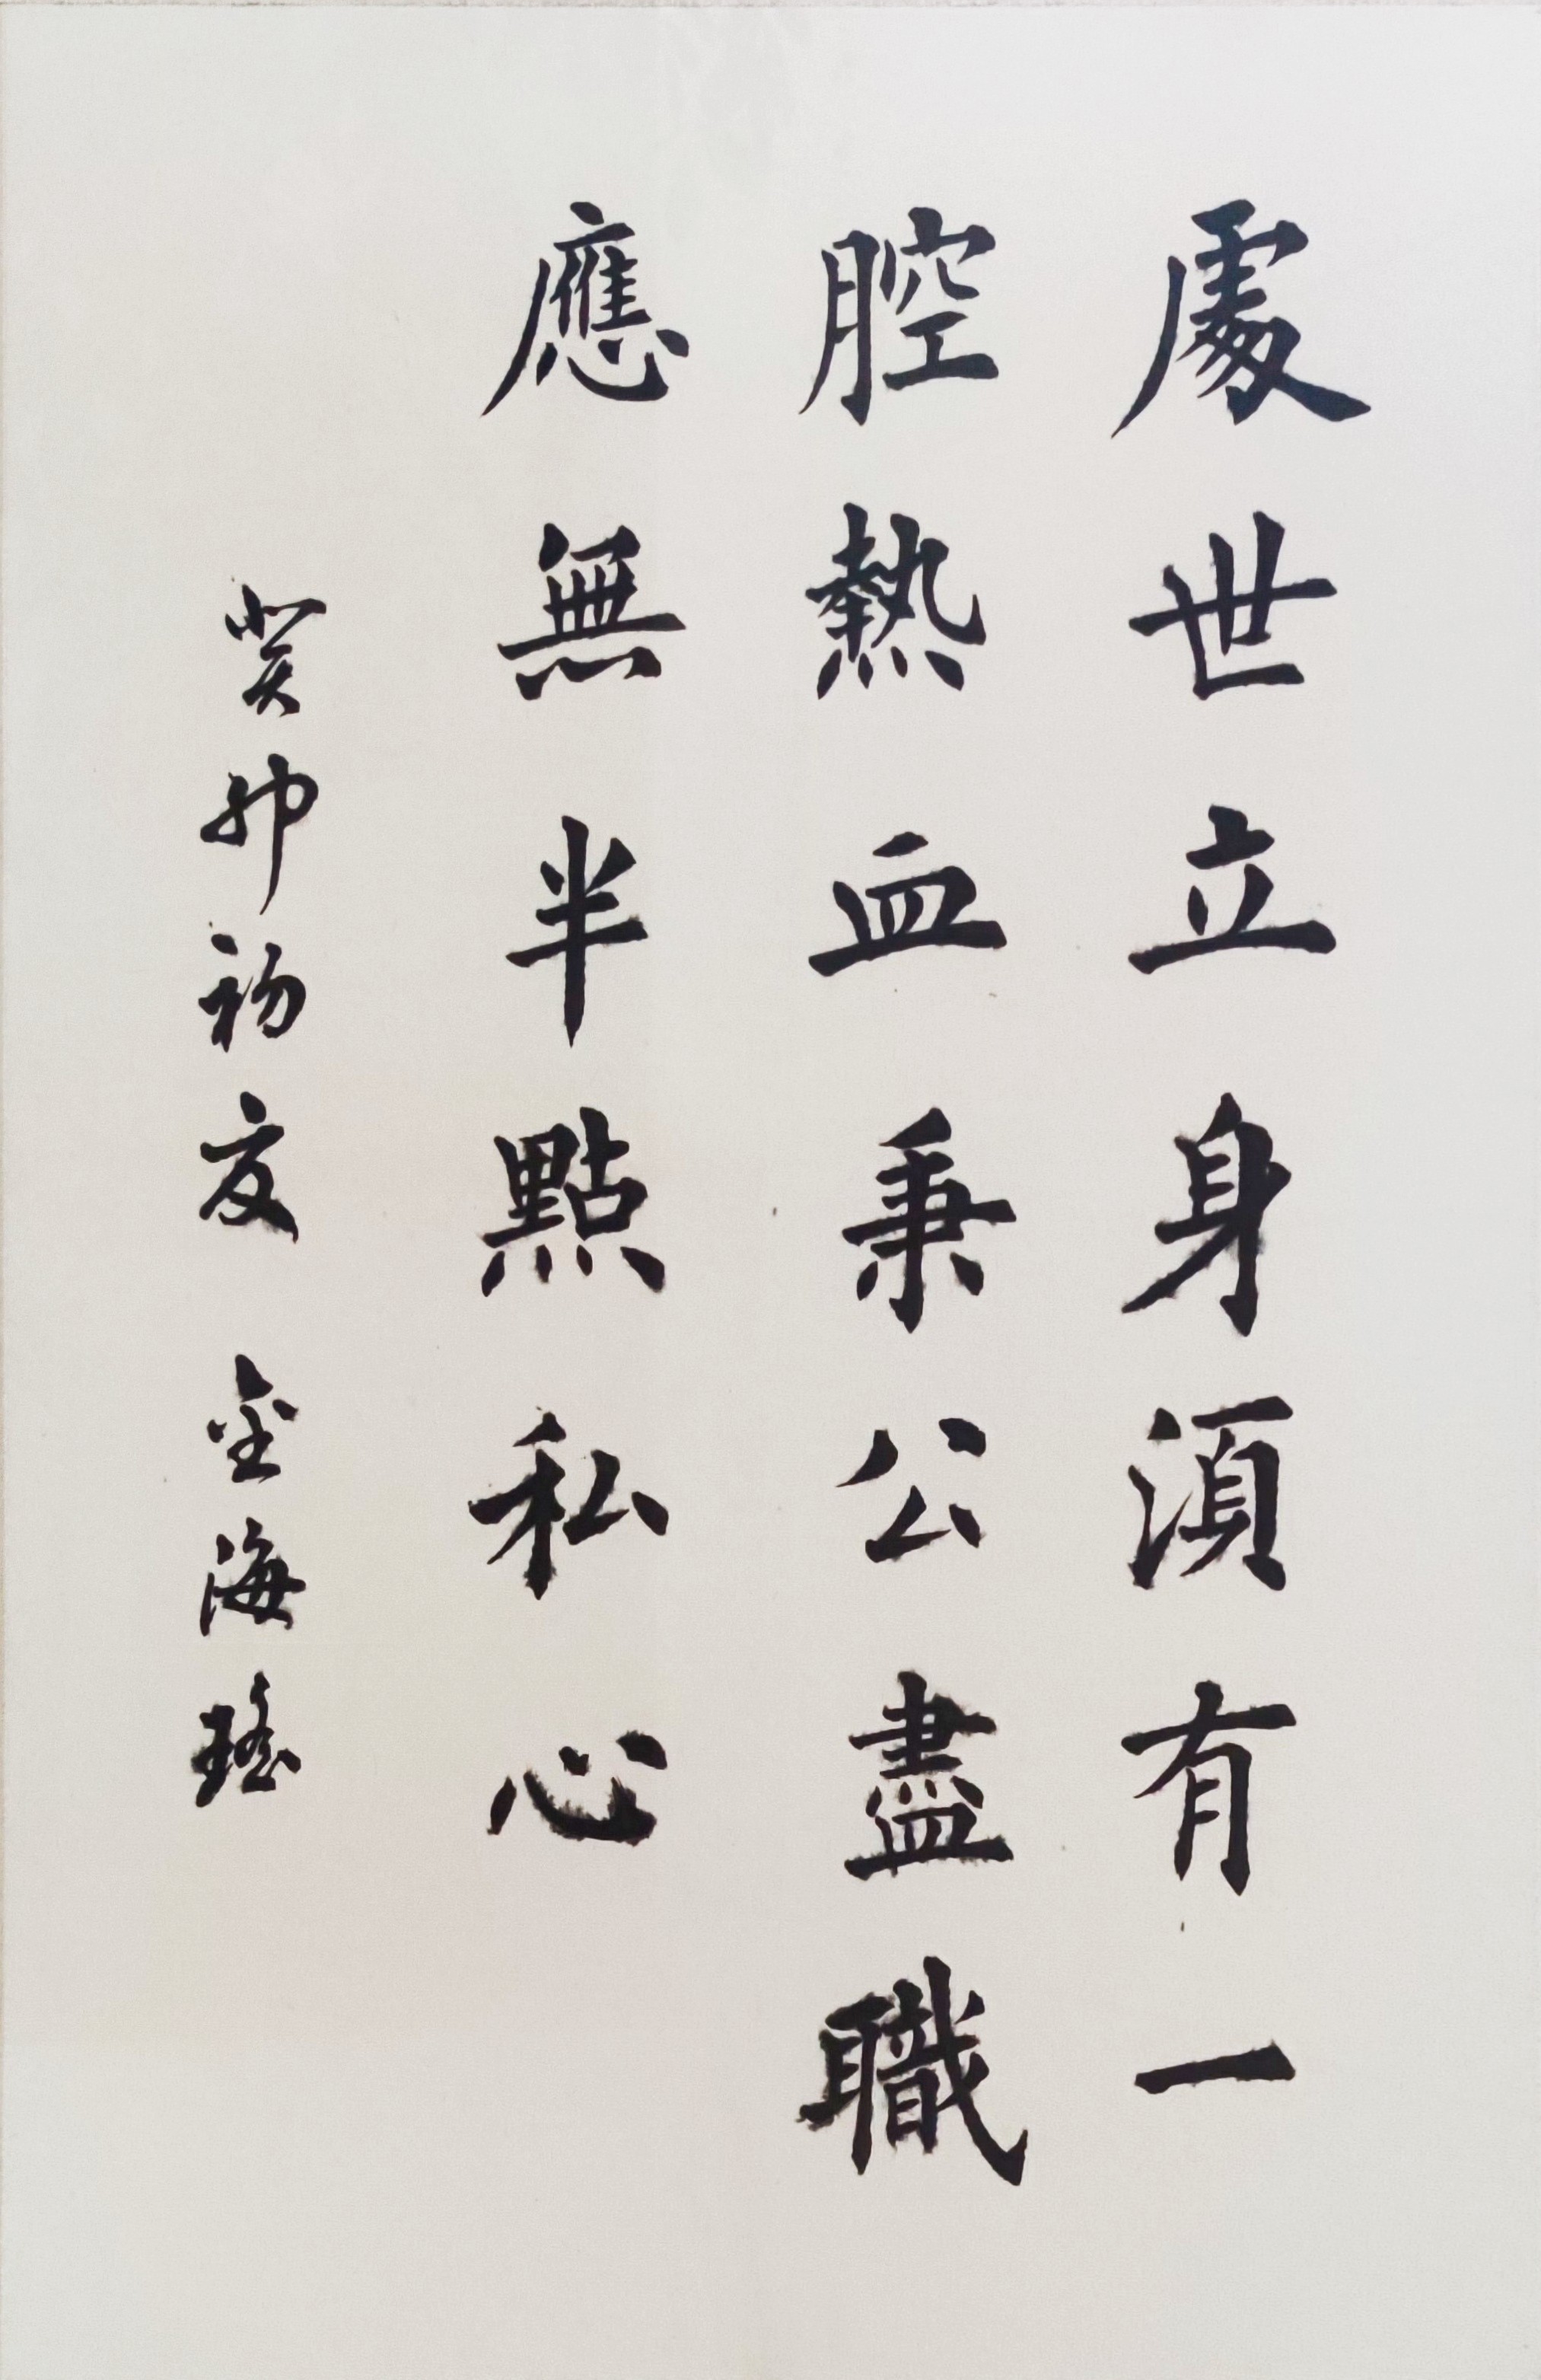 處世立身須有一
腔熱血秉公盡職
應無半點私心
癸卯初夏 金海瑤